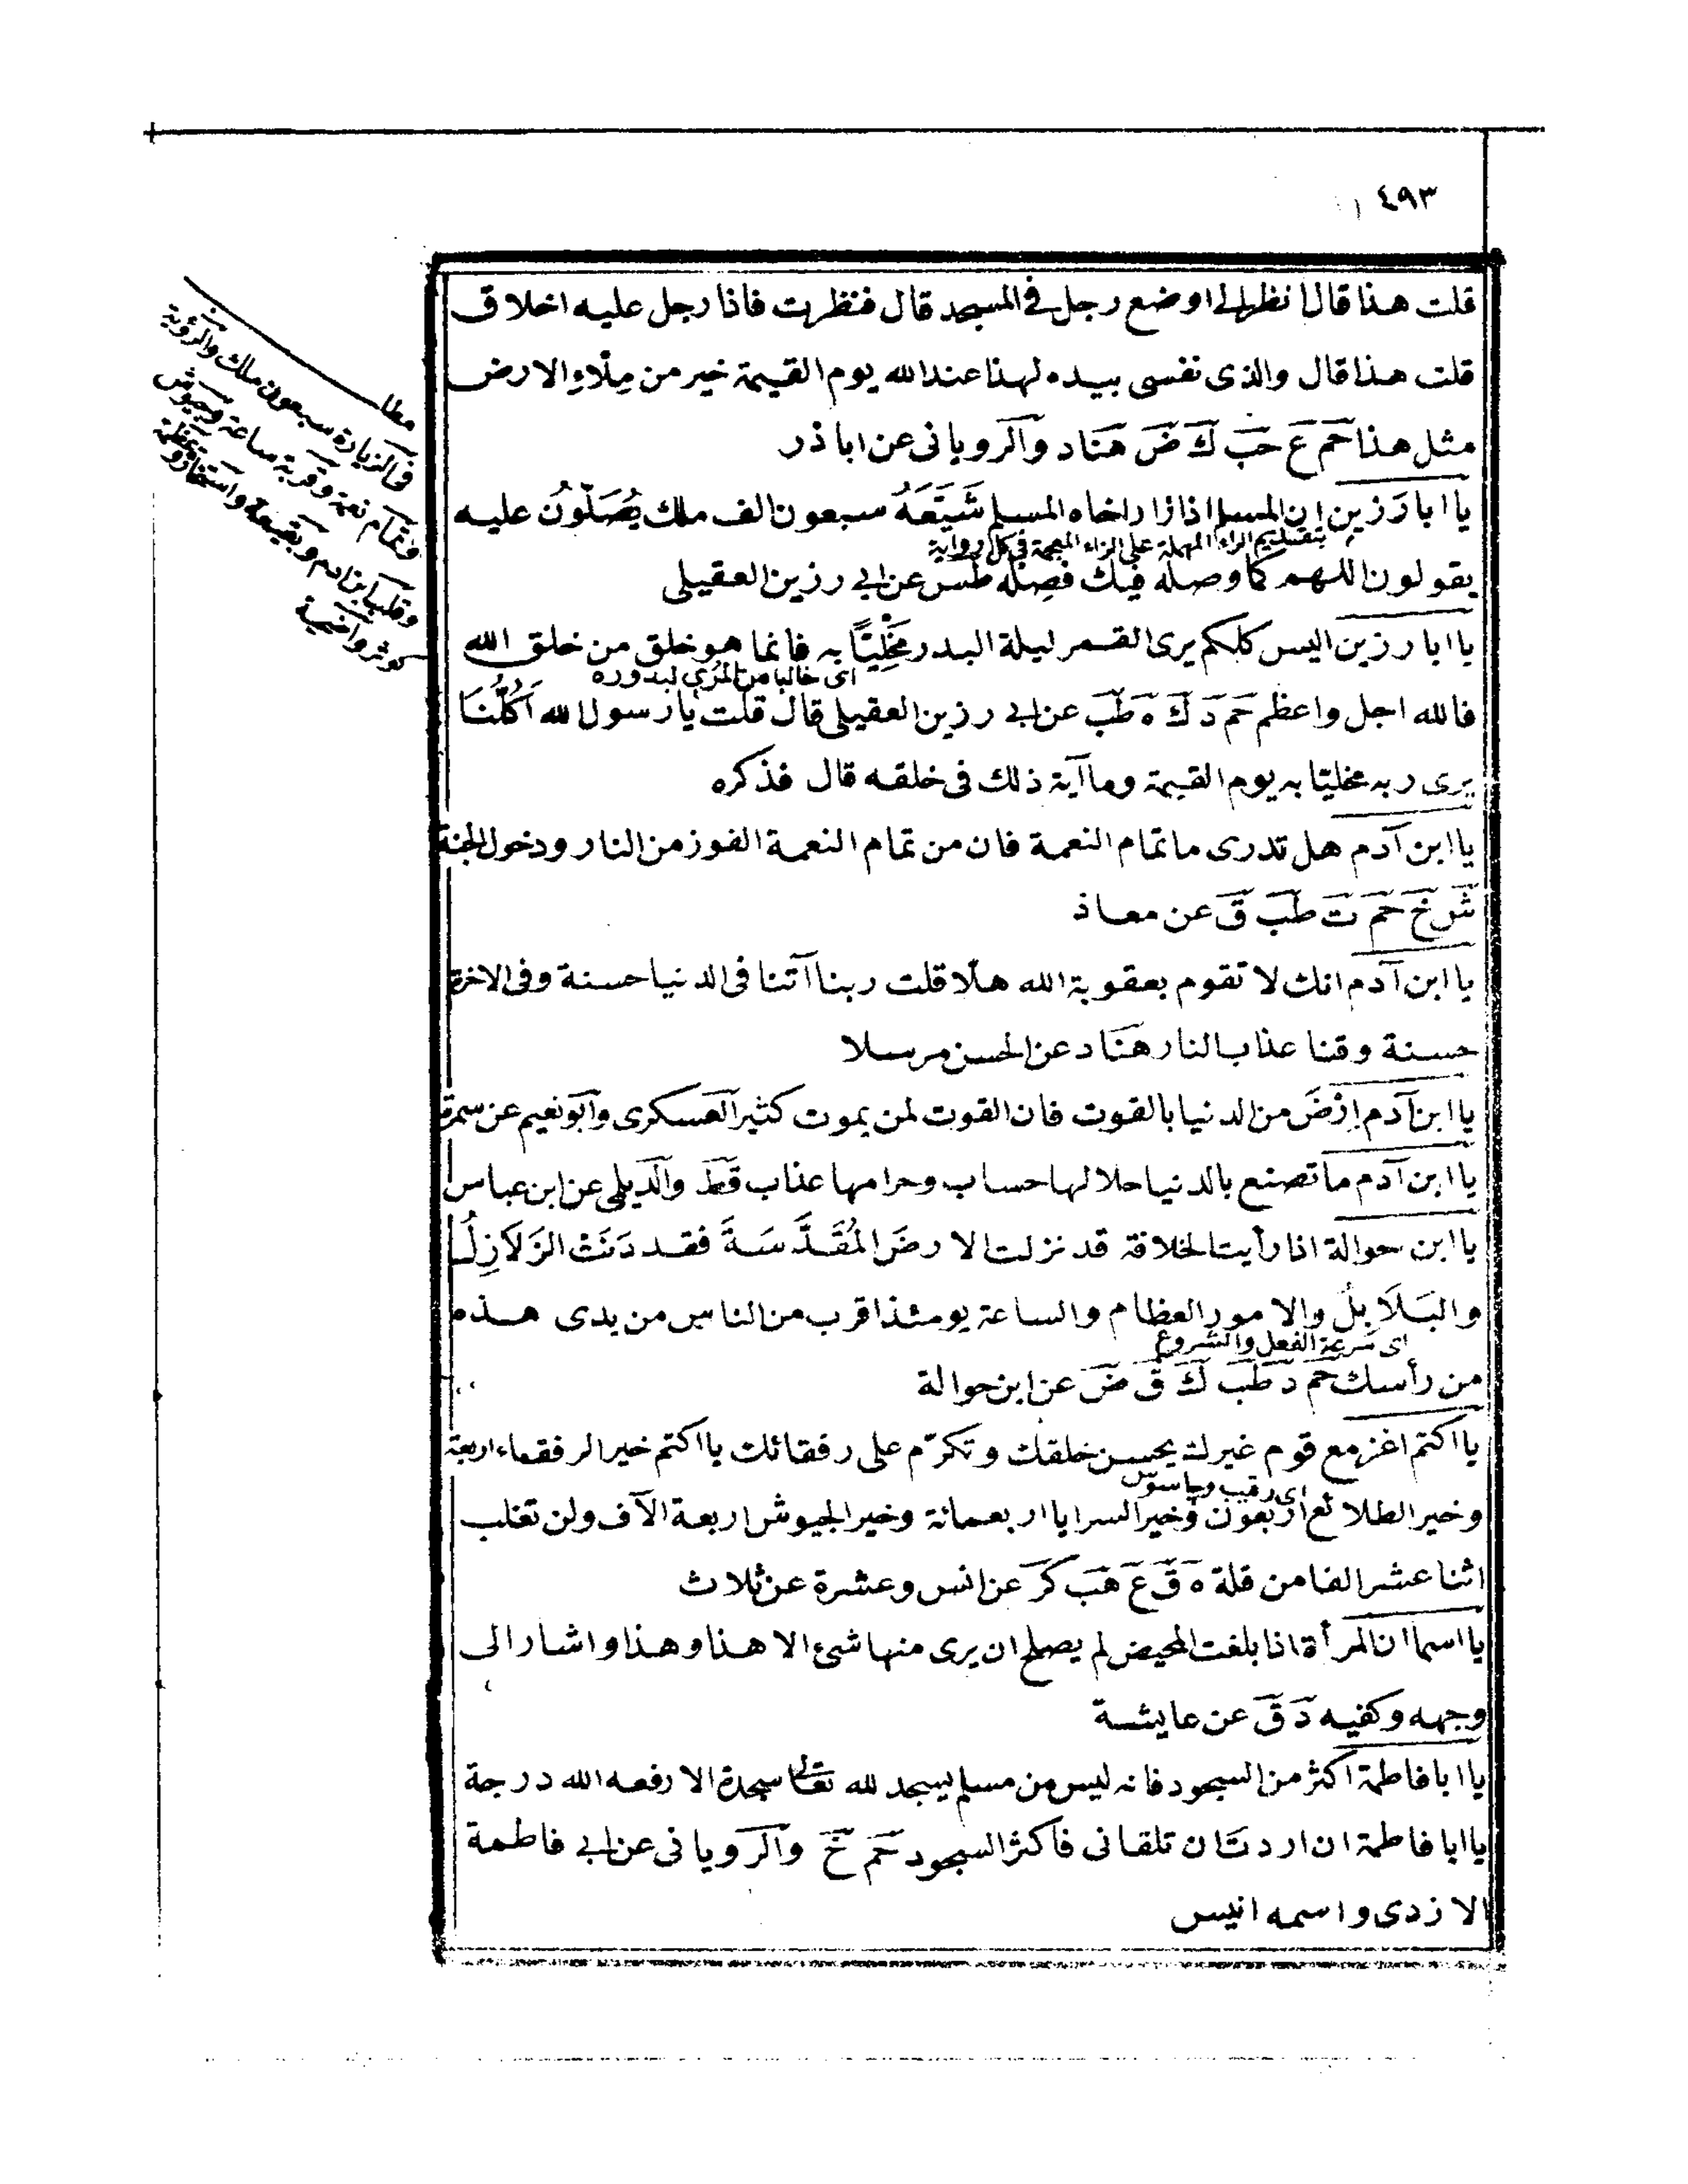 ٤٩٣
قلت هذا قال انظر الى اوضع رجل فى المسجد قال فنظرت فاذا رجل عليه اخلاق
قلت هذا قال والذى نفسى بيده لهذا عند الله يوم القيمة خير من مِلْاءِ الارض
مثل هذا حَم عَ حَبَ كَ ضَ هَناد والَروياني عن اباذر
يا ابا رَزين ان المسلم اذا زار اخاه المسلم شَيَّعَهُ سبعون الف ملك يُصَلّونُ عليه
بتقديم الراء المهملة على الزاء المعجمة فى كل رواية
يقولون اللهم كما وصله فيك فَصِلْه طس عن ابى رزين العقيلى
يا ابا رزين اليس كلكم يرى القمر ليلة البدر مَخْلِيًّا به فانما هو خلق من خلق الله
اى خاليا من المرئي لبدوره
فالله اجل واعظم حَم دَ كَ هَ طَبَ عن ابى رزين العقيلى قال قلت يا رسول الله اَكُلُّنَا
يرى ربه مخليّا به يوم القيمة وما آية ذلك فى خلقه قال فذكره
يا ابن آدم هل تدرى ما تمام النعمة فان من تمام النعمة الفوز من النار ودخول الجنة
شَ خَ حَم تَ طَبَ قَ عن معاذ
يا ابن آدم انك لا تقوم بعقوبة الله هلّا قلت ربنا آتنا فى الدنيا حسنة وفى الاخرة
حسنة وقنا عذاب النار هَنَاد عن الحسن مرسلا
يا ابن آدم اِرْضَ من الدنيا بالقوت فان القوت لمن يموت كثير الَعسكرى واَبو نعيم عن سمرة
يا ابن آدم ما تصنع بالدنيا حلالها حساب وحرامها عذاب قَط والَديلمى عن ابن عباس
يا ابن حوالة اذا رأيت الخلافة قد نزلت الارضَ المُقَدَّسَةَ فقد دَنَتْ الزَلَازِلُ
والبَلَابِلُ والامور العظام والساعة يومئذ اقرب من الناس من يدى هذه
اى سرعة الفعل والشروع
من رأسك حَم دَ طَبَ كَ قَ ضَ عن ابن حوالة
يا اكتم اغز مع قوم غيرك يحسن خلقك وتكرّم على رفقائك يا اكتم خير الرفقاء اربعة
اى رقيب وجاسوس
وخير الطلائع اربعون وخير السرايا اربعمائة وخير الجيوش اربعة الآف ولن تغلب
اثنا عشر الفا من قلة هَ قَ عَ هَبَ كَرَ عن انس وعشرة عن ثلاث
يا اسما ان المرأة اذا بلغت المحيض لم يصلح ان يرى منها شئ الا هذا وهذا واشار الى
وجهه وكفيه دَ قَ عن عايشة
يا ابا فاطمة اكثر من السجود فانه ليس من مسلم يسجد لله تعالى سجدة الا رفعه الله درجة
يا ابا فاطمة ان اردت ان تلقانى فاكثر السجود حَم خَ والَرويانى عن ابى فاطمة
الازدى واسمه انيس
مطلب
فى الزيارة سبعون ملك والرؤية
وتمام نعمة وقربة ساعة وجيوش
وقلب ابن ادم وبقيعة واستغفار
كوثر واضحية